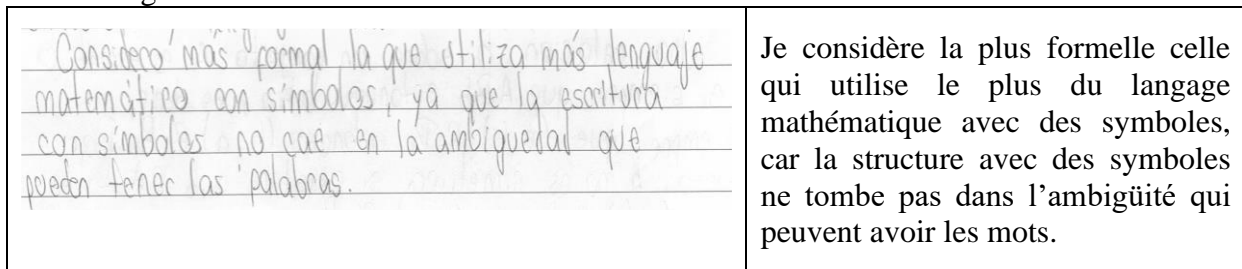 Considero más formal la que utiliza más lenguaje
matemático con símbolos, ya que la escritura
con símbolos no cae en la ambiguedad que
pueden tener las palabras.
Je considère la plus formelle celle
qui utilise le plus du langage
mathématique avec des symboles,
car la structure avec des symboles
ne tombe pas dans l’ambigüité qui
peuvent avoir les mots.